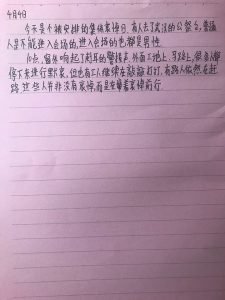 4月4日
今天是个被安排的集体哀悼日，有人去了武汉的公祭，普通
人是不能进入会场的，进入会场的也都是男性。
10点，窗外响起了刺耳的警报声，外面工地上、马路上，很多人都
停下来进行默哀，但也有工人继续在敲敲打打，有路人依然在赶
路，这些人并非没有哀悼，而是在带着哀悼前行。